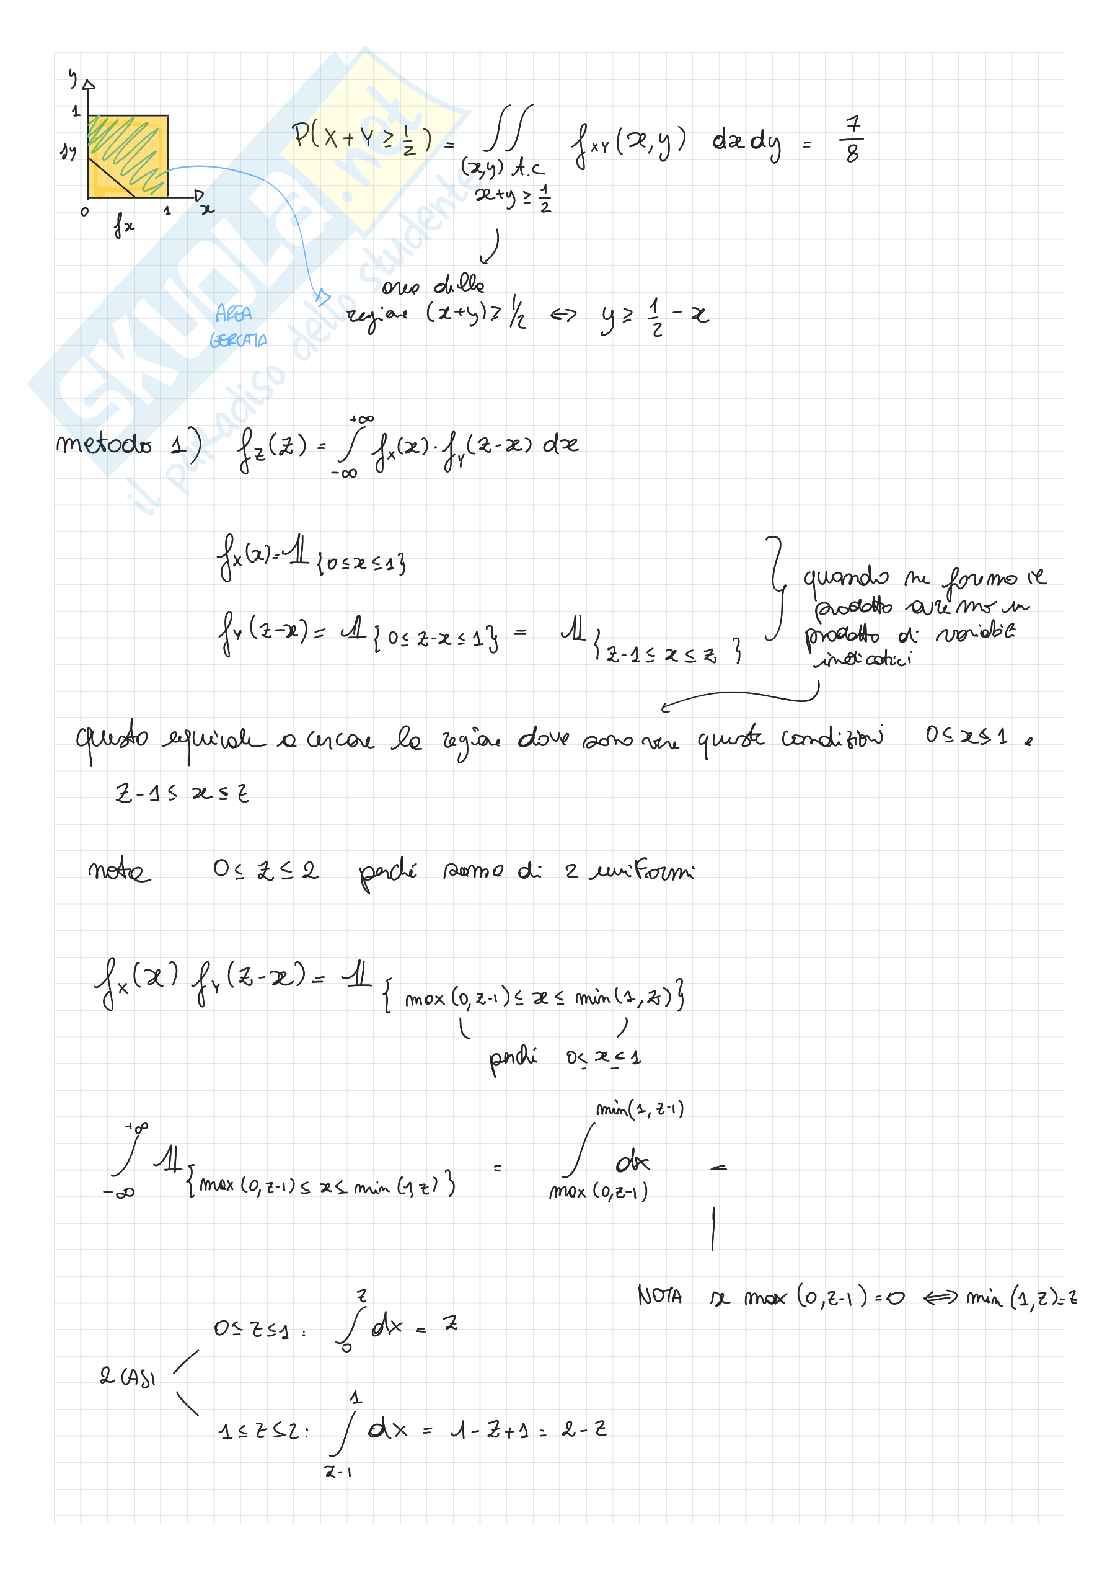 y
1
fy
0 fx 1 x
P(X+Y ≥ 1/2) = ∬ f_XY(x,y) dxdy = 7/8
(x,y) t.c
x+y ≥ 1/2
area della
regione (x+y) ≥ 1/2 ⇔ y ≥ 1/2 - x
AREA
CERCATA
SKUOLA.net
il paradiso dello studente
metodo 1) f_Z(z) = ∫_{-∞}^{+∞} f_X(x)·f_Y(z-x) dx
f_X(x) = 𝟙_{0≤x≤1}
f_Y(z-x) = 𝟙_{0≤z-x≤1} = 𝟙_{z-1≤x≤z}
quando ne formo il
prodotto avremo un
prodotto di variabili
indicatrici
questo equivale a cercare la regione dove sono vere queste condizioni 0≤x≤1 e
z-1≤ x ≤ z
nota 0≤ z ≤ 2 perché somma di 2 uniformi
f_X(x) f_Y(z-x) = 𝟙_{max(0,z-1) ≤ x ≤ min(1,z)}
perché 0≤x≤1
∫_{-∞}^{+∞} 𝟙_{max(0,z-1) ≤ x ≤ min(1,z)} = ∫_{max(0,z-1)}^{min(1,z-1)} dx =
NOTA se max(0,z-1)=0 ⇔ min(1,z)=z
0≤z≤1: ∫_0^z dx = z
2 CASI
1≤z≤2: ∫_{z-1}^1 dx = 1-z+1 = 2-z